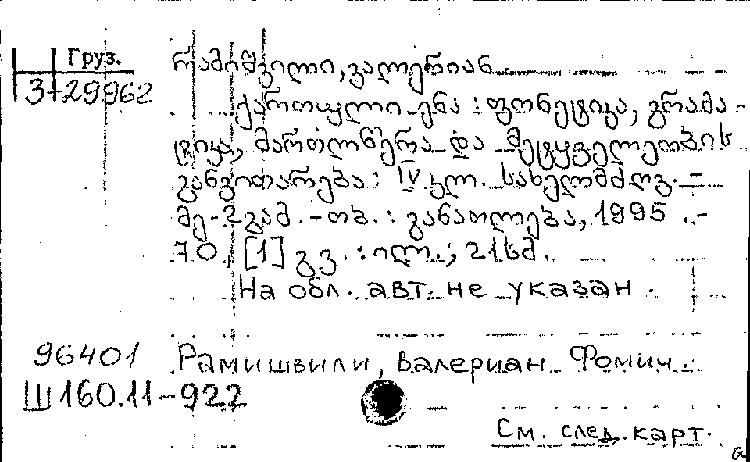 Груз.
3-29962
რამიშვილი, ვალერიან
ქართული ენა : ფონეტიკა, გრამა-
ტიკა, მართლწერა და მეტყველების
განვითარება : IV კლ. სახელმძღვ. –
მე-2 გამ. – თბ. : განათლება, 1995 . –
70, [1] გვ. : ილ. ; 21 სმ.
На обл. авт. не указан.
96401 Рамишвили, Валериан Фомич.
Ш160.11-922
См. след. карт.